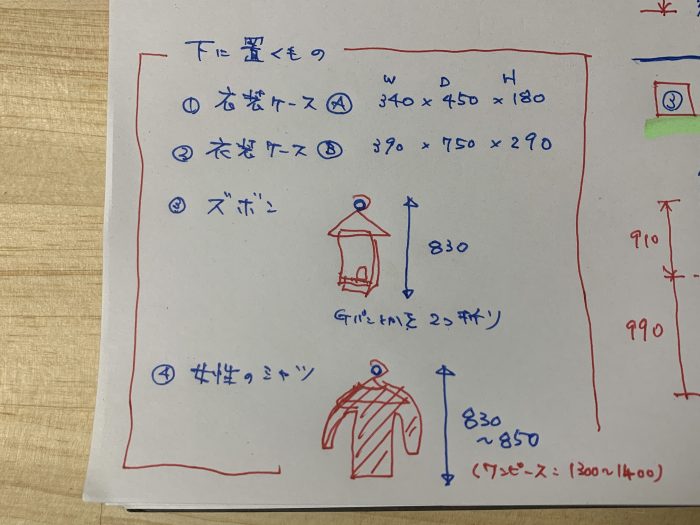 下に置くもの
W D H
① 衣装ケース Ⓐ 340 × 450 × 180
② 衣装ケース Ⓑ 390 × 750 × 290
③ ズボン
830
Gパンとかを2つ折り
④ 女性のシャツ
830
~850
(ワンピース=1300~1400)
③
910
990